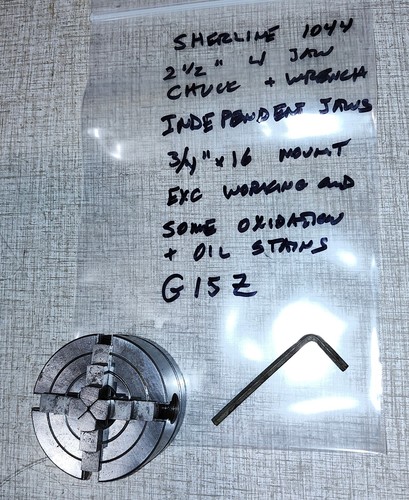 SHERLINE 1044
2 1/2" 4 JAW
CHUCK + WRENCH
INDEPENDENT JAWS
3/4" x 16 MOUNT
EXC WORKING and
SOME OXIDATION
+ OIL STAINS
G15Z